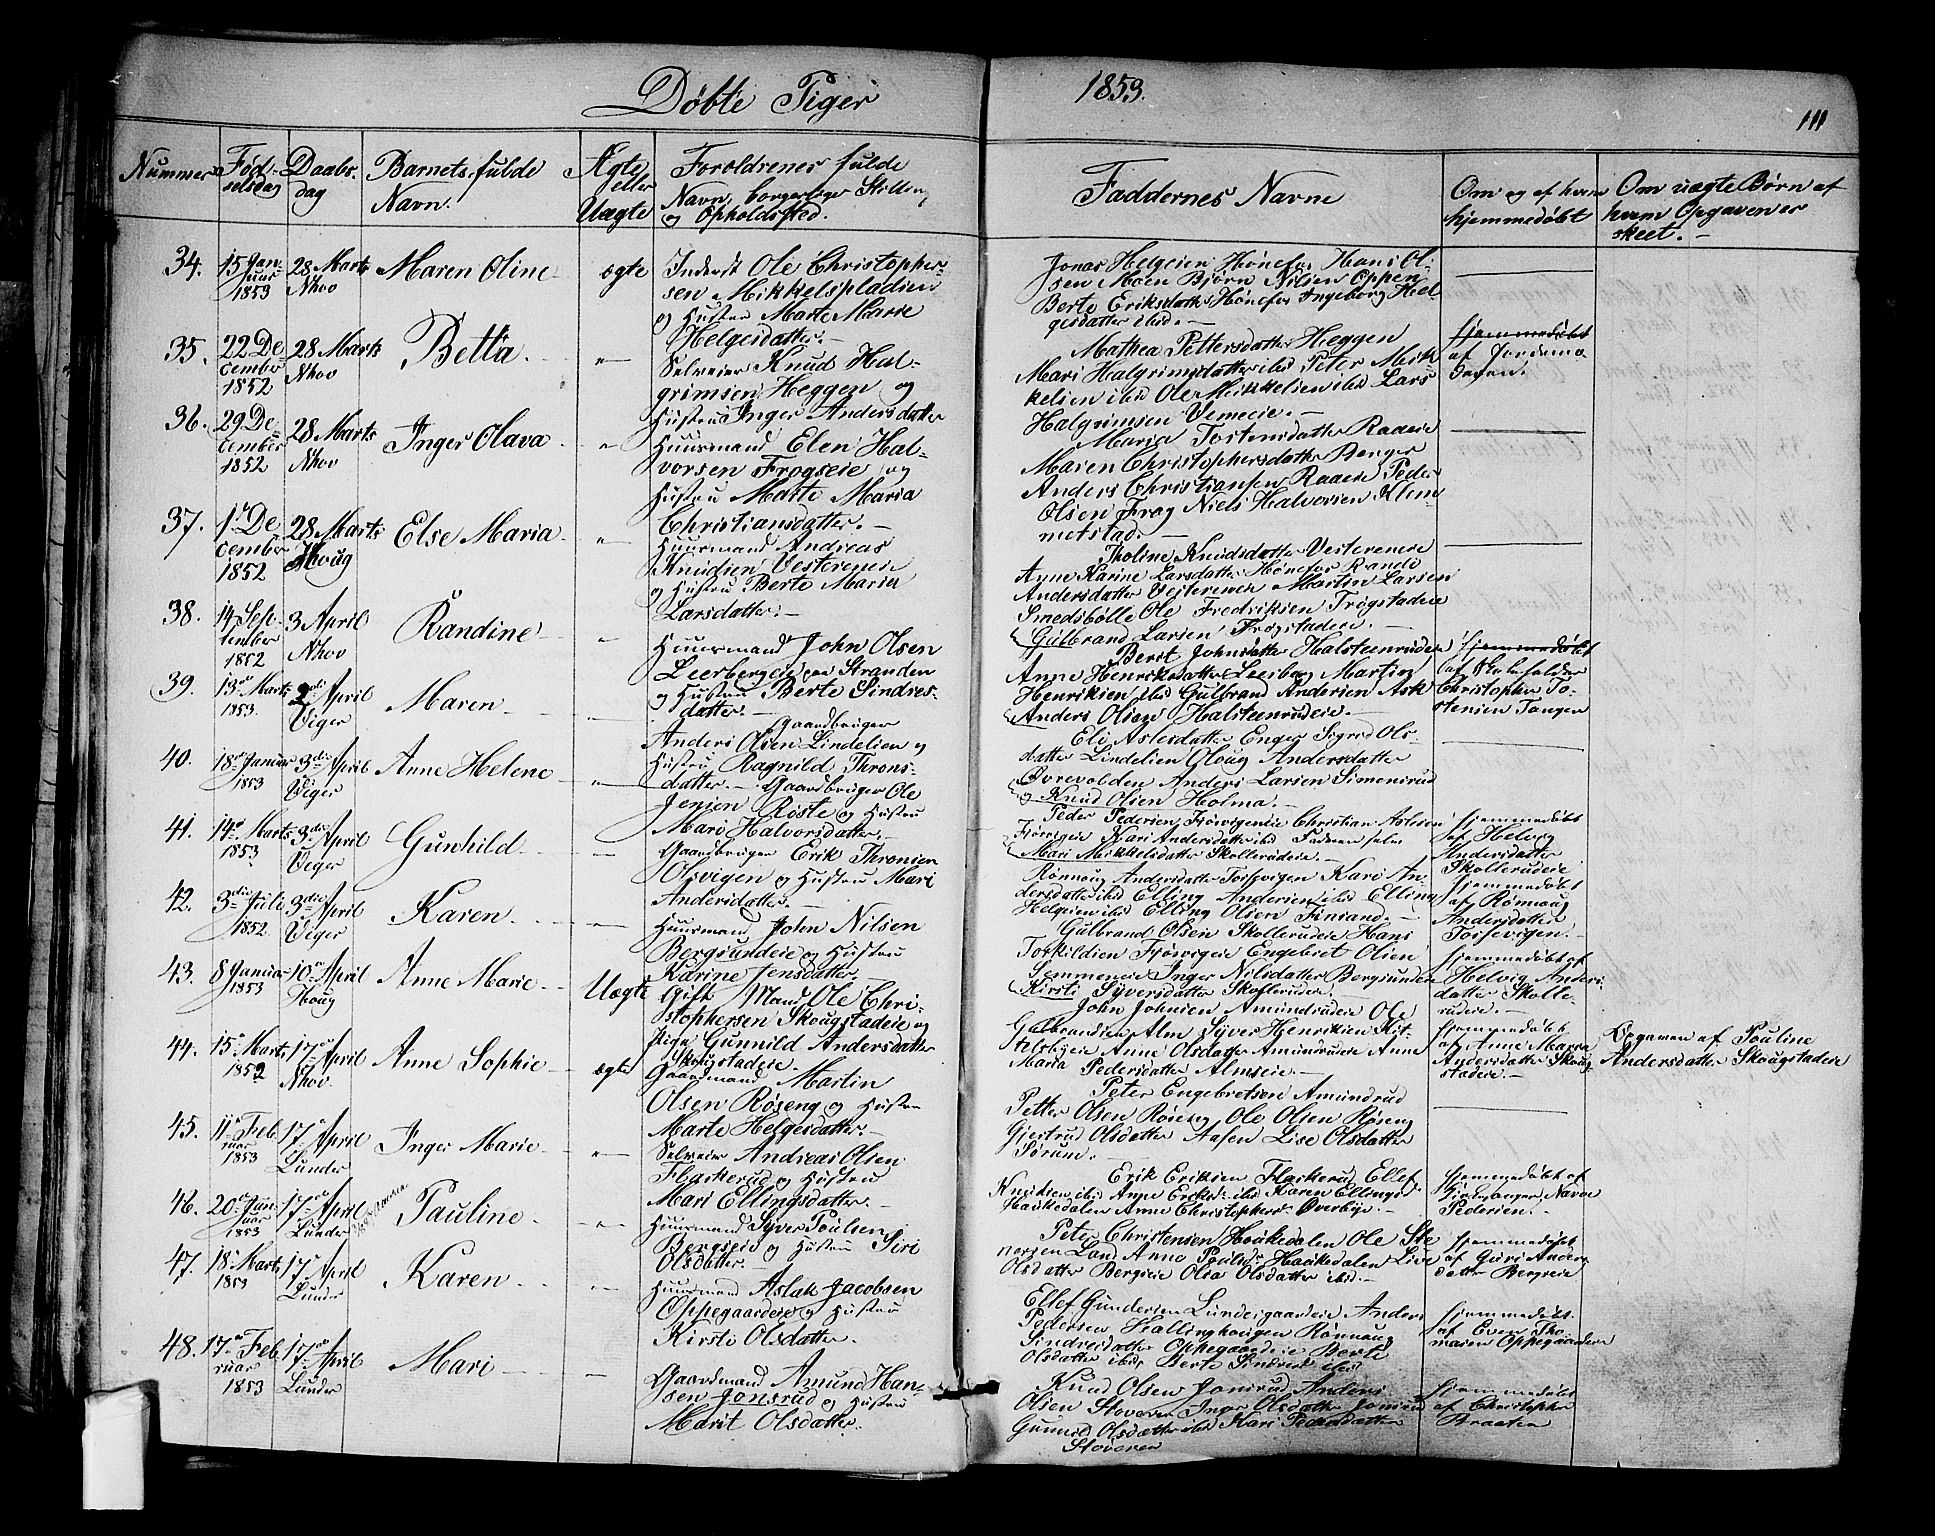 Døbte Piger
1853.
111
Nummer
Fød-
selsdag
Daabs-
dag
Barnets fulde
Navn.
Ægte
eller
Uægte
Foreldrenes fulde
Navn, borgerlige Stilling
og Opholdsted.
Faddernes Navne
Om og af hvem
hjemmedøbt
Om uægte Børn af
hvem Opgaven er
skeet.
34.
15 Jan-
uar
1853
28 Marts
Nhov
Maren Oline
ægte
Inderst Ole Christopher-
sen Mikkelspladsen
og Hustru Marte Marie
Helgesdatter.
Jonas Helgesen Hønefos Hans Ol-
sen Moen Bjørn Nilsen Oppen
Berte Eriksdatter Hønefos Ingeborg Hel-
gesdatter ibid.
35.
22 De-
cember
1852
28 Marts
Nhov
Betta
Selveier Knud Hal-
grimsen Heggen og
Hustru Inger Andersdatter
Mathea Pettersdatter Heggen
Mari Halgrimsdatter ibid Peter Mik-
kelsen ibid Ole Mikkelsen ibid Lars
Halgrimsen Vemeeie.
hjemmedøbt
af Jordemo
deren.
36.
29 De-
cember
1852
28 Marts
Nhov
Inger Olava
Huusmand Elen Hal-
vorsen Frogseie og
Hustru Marte Maria
Christiansdatter.
Maria Tostensdatter Raaeie
Maren Christophersdatter Berger
Anders Christiansen Raaeie Peder
Olsen Frog Niels Halvorsen Klem
metstad.
37.
1 De-
cember
1852
28 Marts
Houg
Else Maria
Huusmand Andreas
Knudsen Vesterneie
og Hustru Berte Maria
Larsdatter.
Tholine Knudsdatter Vesterneie
Anne Karine Larsdatter Hønefos Randi
Andersdatter Vesterneie Martin Larsen
Smedsbølle Ole Fredriksen Trøgstadeie
Gulbrand Larsen Trøgstadeie.
38.
14 Sep-
tember
1852
3 April
Nhov
Randine
Huusmand John Olsen
Leerbergeie paa Stranden
og Hustru Berte Sindres-
datter.
Berit Johnsdatter Halsteenruden
Anne Henriksdatter Leeiberg Martin
Henriksen ibid Gulbrand Andersen Ask
Anders Olsen Halsteenrudeie.
hjemmedøbt
af Skoleholder
Christopher To-
stensen Tangen
39.
13 Marts
1853.
2 April
Viger
Maren
Gaardbruger
Anders Olsen Lindelien og
Hustru Ragnild Throns-
datter.
Eli Aslesdatter Enger Sigrid Ols-
datter Lindelien Oloug Andersdatter
Øvrevolden Anders Larsen Simensrud
og Knud Olsen Holma.
40.
18 Januar
1853
3die April
Viger
Anne Helene
Gaardbruger Ole
Jensen Røste og Hustru
Mari Halvorsdatter.
Peder Pedersen Frøsvigeie Christian Aslesen
Frøsvigeie Kari Andersdatter ibid Faderen selv
Mari Mikkelsdatter Skollerudeie.
hjemmedøbt
af Helvig
Andersdatter
Skollerudeie
41.
14 Marts
1853
3die April
Viger
Gunhild
Gaardbruger Erik Thronsen
Olsvigen og Hustru Mari
Andersdatter.
Rønnoug Andersdatter Torsevigen Kari An-
dersdatter ibid Elling Andersen ibid Elling
Helgesen ibid Elling Olsen Finsand.
hjemmedøbt
af Rønnoug
Andersdatter
Torsevigen.
42.
3die Juli
1852.
3die April
Viger
Karen
Huusmand John Nilsen
Bergsundeie og Hustru
Karine Jensdatter.
Gulbrand Olsen Skollerudeie Hans
Torkildsen Frøsvigeie Engebret Olsen
Semmeneie Inger Nilsdatter Bergsunden
Kirsti Syversdatter Skollerudeie.
hjemmedøbt af
Helvig Anders
datter Skolle-
rudeie
43.
8 Januar
1853
10 April
Houg
Anne Marie
Uægte
Gift Mand Ole Chri-
stophersen Skougstadeie og
Pige Gunnild Andersdatter
Skougstadeie
John Johnsen Amundrudeie Ole
Gulbrandsen Alm Syver Henriksen Kit-
telsbyeie Anne Olsdatter Amundrudeie Anne
Maria Pedersdatter Almseie.
hjemmedøbt
af Anne Maria
Andersdatter Skoug
stadeie.
Opgaven af Pouline
Andersdatter Skougstadeie
44.
15 Marts
1852
17 April
Nhov
Anne Sophie
ægte
Gaardmand Martin
Olsen Røseng og Hustru
Marte Helgesdatter.
Peter Engebretsen Amundrud
Petter Olsen Røseng Ole Olsen Røseng
Gjertrud Olsdatter Aasen Lise Olsdatter
Sørum.
45.
11 Feb
ruar
1853
17 April
Lunder
Inger Marie
Selveier Andreas Olsen
Flaskerud og Hustru
Mari Ellingsdatter.
Erik Eriksen Flaskerud Ellef
Knudsen ibid Anne Eriksd. ibid Karen Ellingsd.
Haukedalen Anne Christophersd. Overbye.
hjemmedøbt af
Gjenganger Navne
Pedersen.
46.
20 Jan-
uar
1853
17 April
Lunder
Pauline
Huusmand Syver Poulsen
Bergseie og Hustru Siri
Olsdatter.
Peter Christensen Haukedalen Ole Ste
nersen Land Anne Poulsd. Haukedalen Lise
Olsdatter Bergseie Olia Olsdatter ibid.
hjemmedøbt
af Guri Anders
datter Bergseie
47.
18 Marts
1853
17 April
Lunder
Karen
Huusmand Aslak Jacobsen
Oppegaardeie og Hustru
Kirsti Olsdatter.
Ellef Gundersen Lundesgaardeie Anders
Pedersen Hallinghougen Rønnaug
Sindresdatter Oppegaardeie Berte
Olsdatter ibid Berte Sindresd. ibid
hjemmedøbt
af Even Tho
masen Oppegaardeie
48.
17 Feb
ruar
1853
17 April
Lunder
Mari
Gaardmand Amund Han-
sen Jonsrud og Hustru
Marit Olsdatter.
Knud Olsen Jonsrud Anders
Olsen Stoveren Inger Olsdatter Jonsrud
Gunild Olsdatter ibid Kari Pedersdatter
Stoveren
hjemmedøbt
af Christopher
Braaten